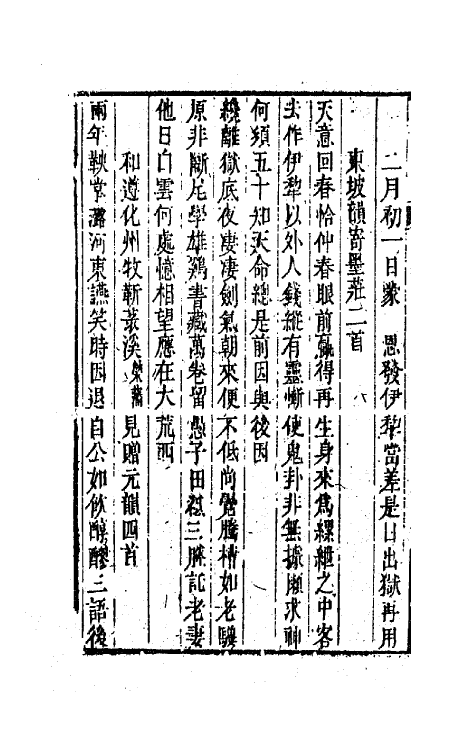 二月初一日蒙　恩發伊犂當差是日出獄再用
東坡韻寄墨莊二首
天意回春恰仲春眼前贏得再生身來爲縲絏之中客
去作伊犂以外人錢縱有靈慚使鬼卦非無據廟求神
何須五十知天命總是前因與後因
纔離獄底夜凄凄劍氣朝來便不低尚覺騰槽如老驥
原非斷尾學雄鷄書藏萬卷留愚子田秫三 託老妻
他日白雲何處憶相望應在大荒西
和遵化州牧靳裴溪榮藩見贈元韻四首
兩年執掌灤河東讌笑時因退自公如飲醇醪三語後